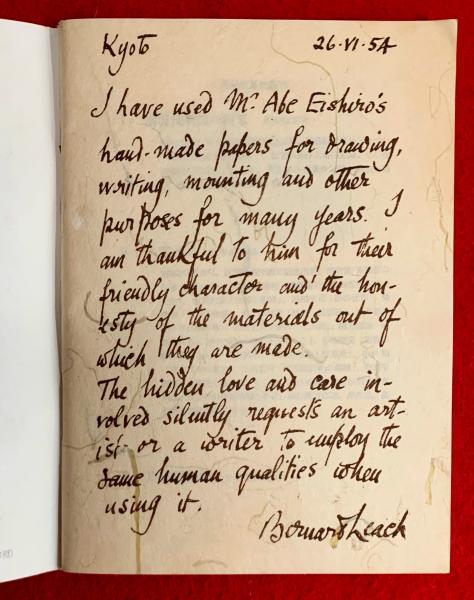 Kyoto 26·VI·54
I have used Mr Abe Eishiro's
hand-made papers for drawing,
writing, mounting and other
purposes for many years. I
am thankful to him for their
friendly character and the hon-
esty of the materials out of
which they are made.
The hidden love and care in-
volved silently requests an art-
ist or a writer to employ the
same human qualities when
using it.
Bernard Leach